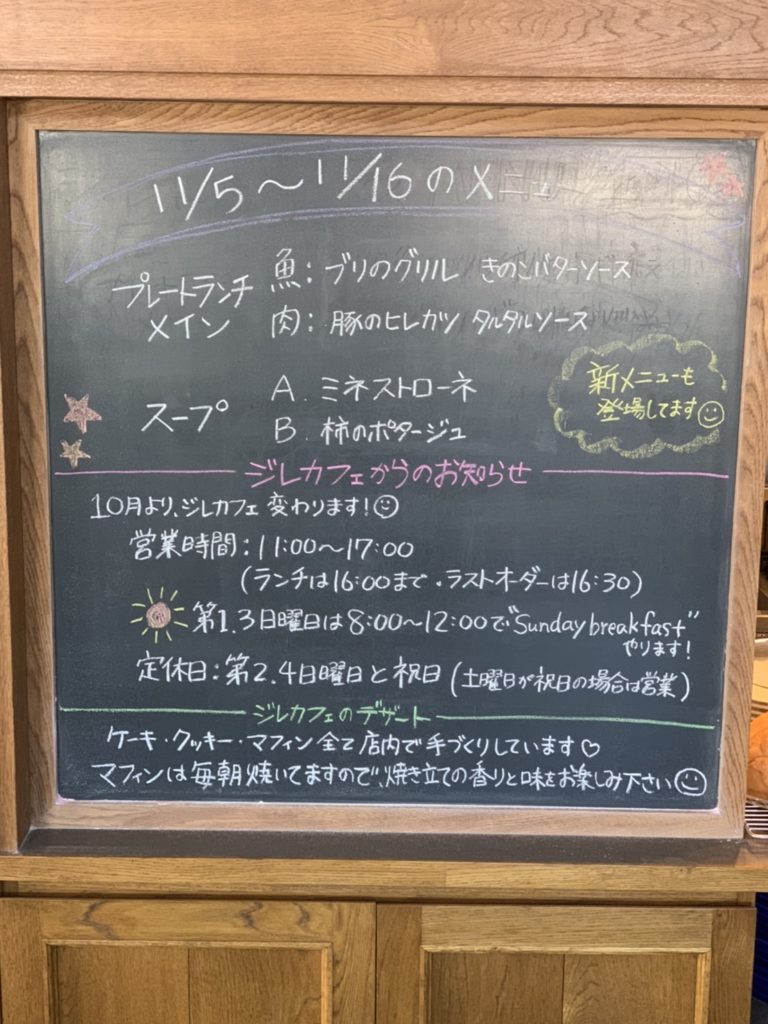 11/5〜11/16のメニュー
プレートランチ
メイン
魚：ブリのグリル きのこバターソース
肉：豚のヒレカツ タルタルソース
スープ
A. ミネストローネ
B. 柿のポタージュ
新メニューも
登場してます
ジレカフェからのお知らせ
10月より、ジレカフェ変わります！
営業時間：11:00〜17:00
（ランチは16:00まで・ラストオーダーは16:30）
第1.3日曜日は8:00〜12:00で"Sunday breakfast"
やります！
定休日：第2.4日曜日と祝日（土曜日が祝日の場合は営業）
ジレカフェのデザート
ケーキ・クッキー・マフィン全て店内で手づくりしています♡
マフィンは毎朝焼いてますので、焼き立ての香りと味をお楽しみ下さい